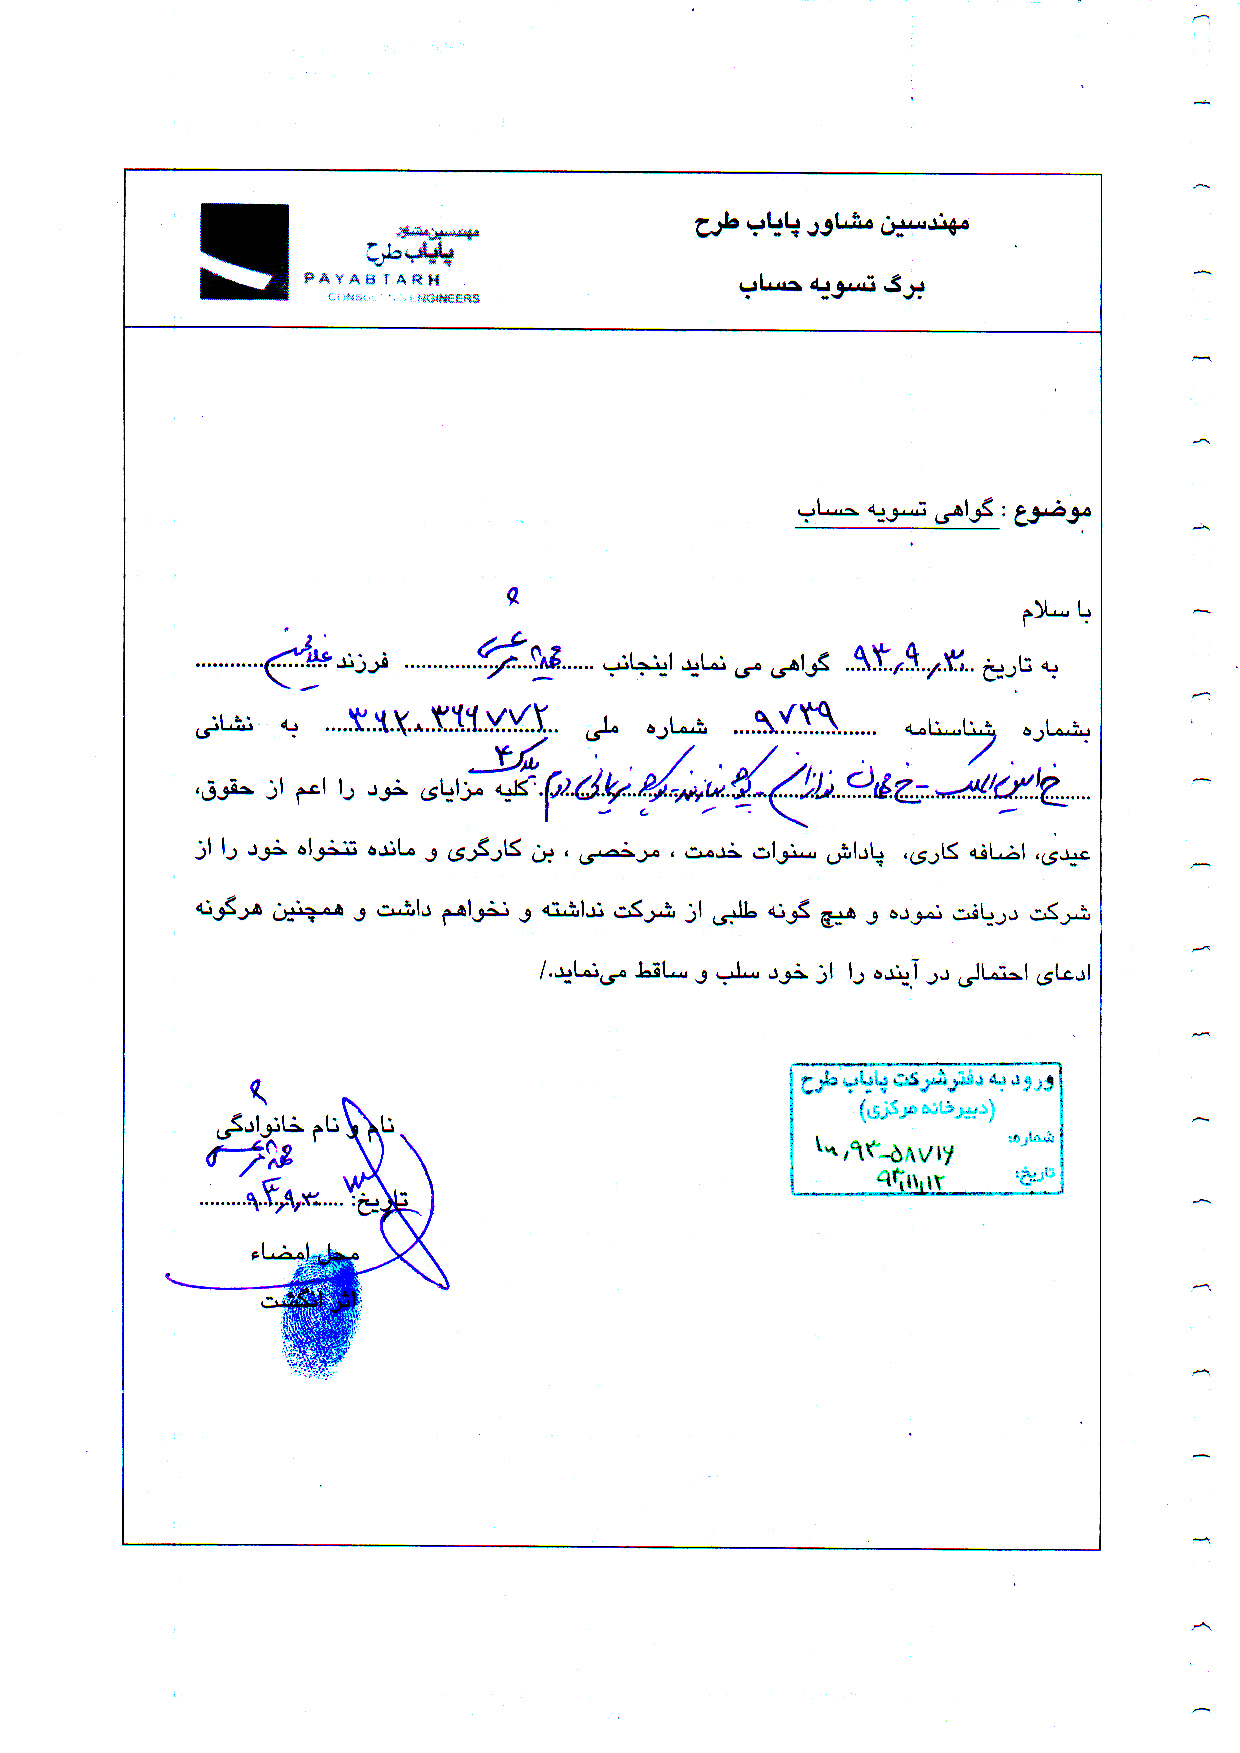 مهندسین مشاور پایاب طرح
برگ تسویه حساب
مهندسین مشاور
پایاب طرح
PAYABTARH
CONSULTING ENGINEERS
موضوع : گواهی تسویه حساب
با سلام
به تاریخ ۹۳٫۹٫۳۰ گواهی می نماید اینجانب فرزند
بشماره شناسنامه ۹۷۳۹ شماره ملی ۳۶۲۰۳۶۶۷۷۲ به نشانی
پلاک ۴ کلیه مزایای خود را اعم از حقوق،
عیدی، اضافه کاری، پاداش سنوات خدمت ، مرخصی ، بن کارگری و مانده تنخواه خود را از
شرکت دریافت نموده و هیچ گونه طلبی از شرکت نداشته و نخواهم داشت و همچنین هرگونه
ادعای احتمالی در آینده را از خود سلب و ساقط می‌نماید./
ورود به دفتر شرکت پایاب طرح
(دبیرخانه مرکزی)
شماره: ۹۳-۵۸۷۱۶
تاریخ: ۹۳٫۱۱٫۱۲
نام و نام خانوادگی
تاریخ: ۹۳٫۹٫۳۰
محل امضاء
اثر انگشت